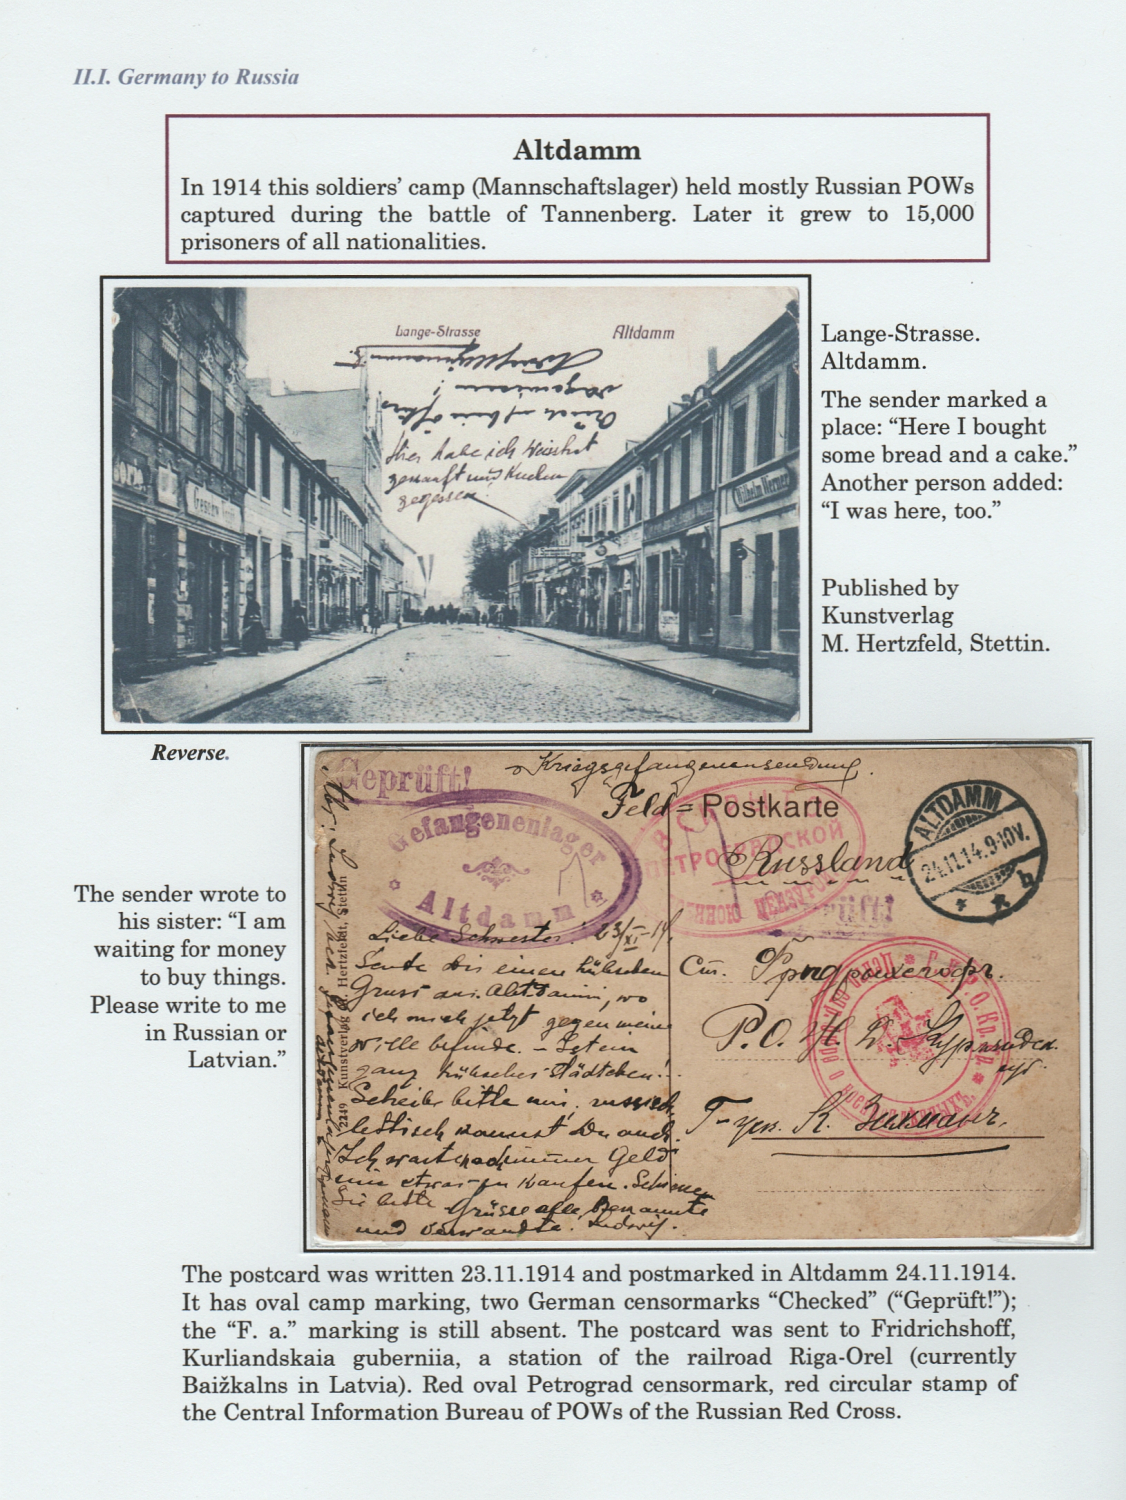 II.I. Germany to Russia
Altdamm
In 1914 this soldiers’ camp (Mannschaftslager) held mostly Russian POWs
captured during the battle of Tannenberg. Later it grew to 15,000
prisoners of all nationalities.
Lange-Strasse
Altdamm
Hier habe ich
gekauft und Kuchen
gegessen.
Wilhelm Werner
Lange-Strasse.
Altdamm.
The sender marked a
place: “Here I bought
some bread and a cake.”
Another person added:
“I was here, too.”
Published by
Kunstverlag
M. Hertzfeld, Stettin.
Reverse.
The sender wrote to
his sister: “I am
waiting for money
to buy things.
Please write to me
in Russian or
Latvian.”
Geprüft!
Kriegsgefangenensendung.
Feld = Postkarte
Gefangenenlager
Altdamm
ПЕТРОГРАДСКОЙ
Russland
ALTDAMM
24.11.14.9-10V.
b
Liebe Schwester! 23/XI-14.
Sende dir einen hübschen
Gruss aus Altdamm, wo
ich mich jetzt gegen meine
Wille befinde. – Ist ein
ganz hübsches Städtchen!
Schreibe bitte mir, russisch
lettisch kannst Du auch.
Ich warte noch immer Geld
um etwas zu kaufen.
Sie bitte Grüsse alle Bekannte
und Verwandte. Ludwig.
2249 Kunstverlag M. Hertzfeldt, Stettin
Ст.
The postcard was written 23.11.1914 and postmarked in Altdamm 24.11.1914.
It has oval camp marking, two German censormarks “Checked” (“Geprüft!”);
the “F. a.” marking is still absent. The postcard was sent to Fridrichshoff,
Kurliandskaia guberniia, a station of the railroad Riga-Orel (currently
Baižkalns in Latvia). Red oval Petrograd censormark, red circular stamp of
the Central Information Bureau of POWs of the Russian Red Cross.